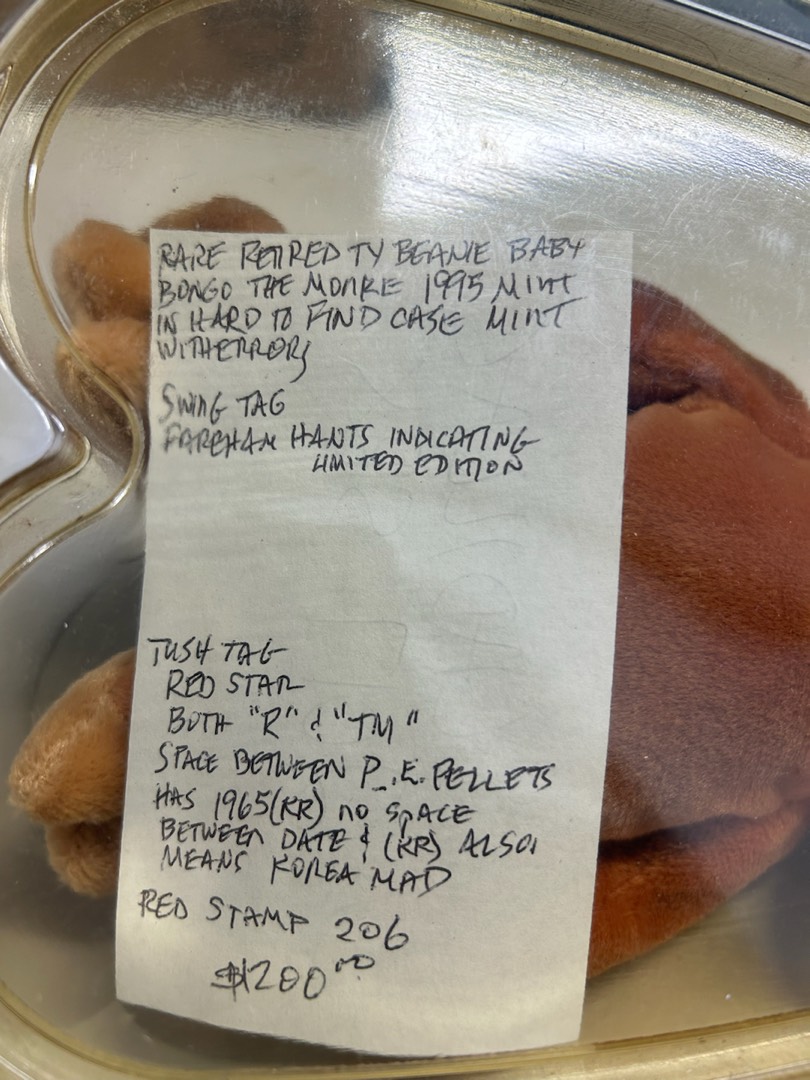 RARE RETIRED TY BEANIE BABY
BONGO THE MONKE 1995 MINT
IN HARD TO FIND CASE MINT
WITH ERRORS
SWING TAG
FAREHAM HANTS INDICATING
LIMITED EDITION
TUSH TAG
RED STAR
BOTH "R" & "TM"
SPACE BETWEEN P_.E. PELLETS
HAS 1965(KR) NO SPACE
BETWEEN DATE & (KR) ALSO
MEANS KOREA MAD
RED STAMP 206
$1200.00